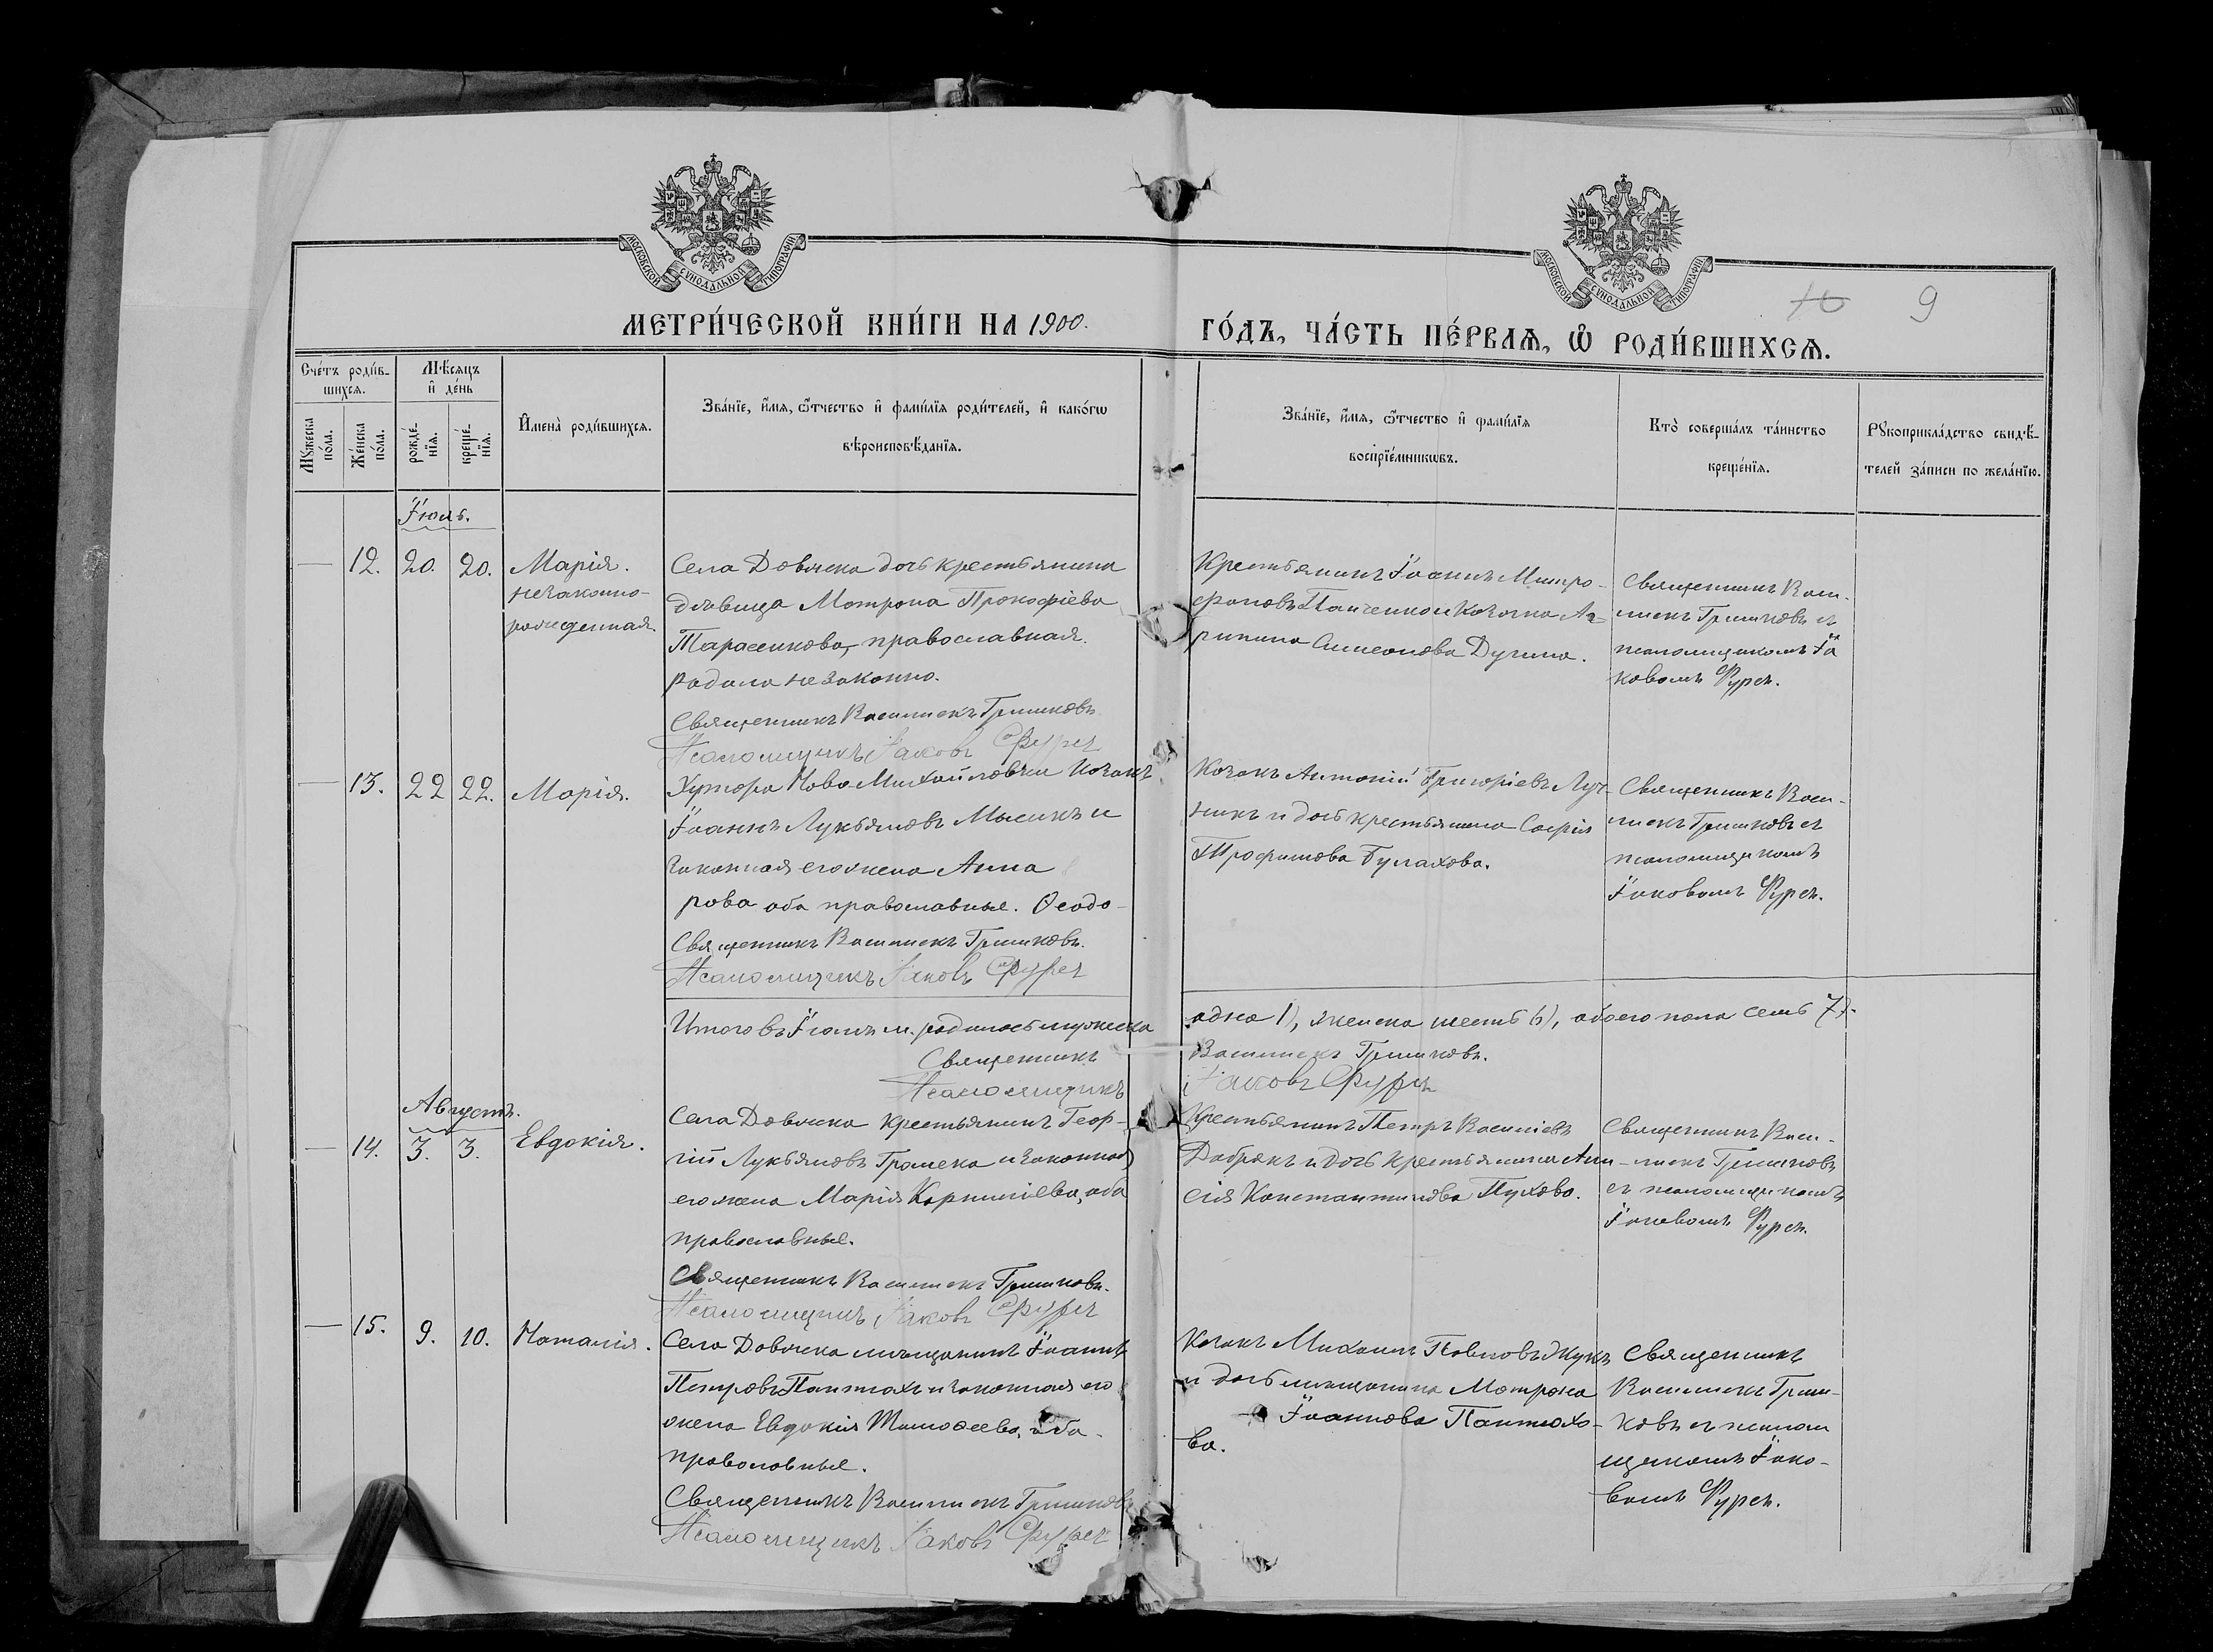 МОСКОВСКОЙ СѴНОДАЛЬНОЙ ТИПОГРАФІИ
МОСКОВСКОЙ СѴНОДАЛЬНОЙ ТИПОГРАФІИ
10 9
МЕТРИ́ЧЕСКОЙ КНИ́ГИ НА 1900.
ГО́ДЪ, ЧА́СТЬ ПЕ́РВАѦ, Ѡ҆ РОДИ́ВШИХСѦ.
Сче́тъ роди́в-
шихся.
Мꙋ́жеска по́ла.
Же́нска по́ла.
Мѣ́сяцъ
и҆ де́нь
рожде́-
нїя.
креще́-
нїя.
И҆мена̀ роди́вшихся.
Зва́нїе, и҆́мя, ѻ҆́тчество и҆ фами́лїя роди́телей, и҆ како́гѡ
вѣроисповѣ́данїя.
Зва́нїе, и҆́мя, ѻ҆́тчество и҆ фами́лїя
воспрїе́мникѡвъ.
Кто̀ соверша́лъ та́инство
креще́нїя.
Рꙋкоприкла́дство свидѣ́-
телей за́писи по жела́нїю.
Іюль.
— 12. 20. 20. Марія.
незаконно-
рожденная.
Села Довжека дочь крестьянина
дѣвица Матрона Прокофіева
Тарасенкова, православная.
родила незаконно.
Священникъ Василискъ Гришковъ.
Псаломщикъ Іаковъ Фурсъ
Крестьянинъ Іоаннъ Митро-
фановъ Панченко и козачка Аг-
рипина Симеонова Дугина.
Священникъ Васи-
лискъ Гришковъ съ
псаломщикомъ Іа
ковомъ Фурсъ.
— 13. 22 22. Марія.
Хутора Ново Михайловки козакъ
Іоаннъ Лукьяновъ Мысикъ и
законная его жена Анна
рова оба православные. Ѳеодо-
Священникъ Василискъ Гришковъ.
Псаломщикъ Іаковъ Фурсъ
Козакъ Антоній Григоріевъ Луч-
никъ и дочь крестьянина Софія
Трофимова Булахова.
Священникъ Васи-
лискъ Гришковъ съ
псаломщикомъ
Іаковомъ Фурсъ.
Итого въ Іюлѣ м. родилось мужеска
одно 1), женска шесть 6), обоего пола семь 7).
Священникъ Василискъ Гришковъ.
Псаломщикъ Іаковъ Фурсъ
Августъ.
— 14. 3. 3. Евдокія.
Села Довжека крестьянинъ Геор-
гій Лукьяновъ Громека и законная
его жена Марія Корниліева, оба
православные.
Священникъ Василискъ Гришковъ.
Псаломщикъ Іаковъ Фурсъ
Крестьянинъ Петръ Василіевъ
Добрякъ и дочь крестьянина Ани-
сія Константинова Пухова.
Священникъ Васи-
лискъ Гришковъ
съ псаломщикомъ
Іаковомъ Фурсъ.
— 15. 9. 10. Наталія.
Села Довжека мѣщанинъ Іоаннъ
Петровъ Пантюхъ и законная его
жена Евдокія Тимоѳеева, оба
православные.
Священникъ Василискъ Гришковъ
Псаломщикъ Іаковъ Фурсъ
Козакъ Михаилъ Павловъ Жукъ
и дочь мѣщанина Матрона
Іоаннова Пантюхо-
ва.
Священникъ
Василискъ Гриш-
ковъ съ псалом
щикомъ Іако-
вомъ Фурсъ.